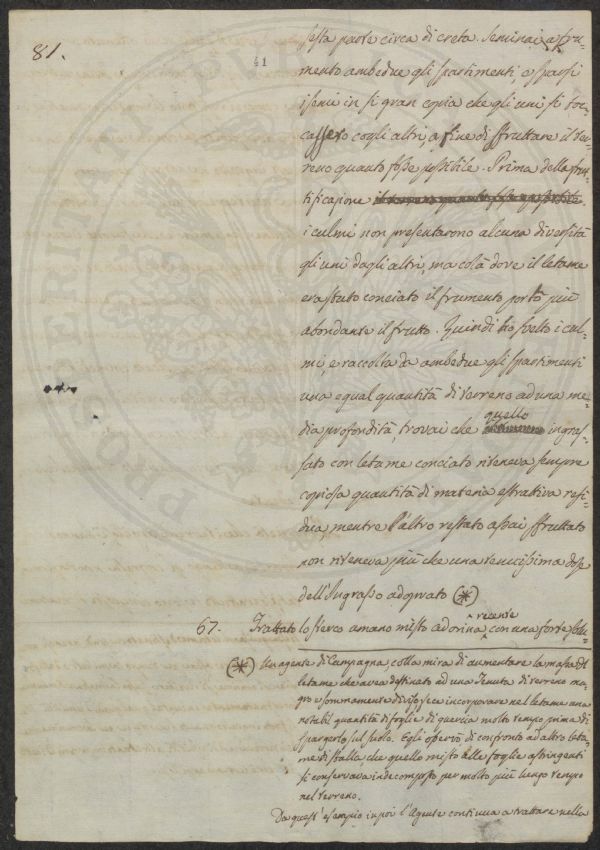 81.
41
sesta parte circa di creta. Seminai a fru-
mento ambedue gli spartimenti, e sparsi
i semi in sì gran copia che gli uni si toc-
cassero cogli altri, a fine di sfruttare il ter-
reno quanto fosse possibile. Prima della fru-
tificazione il terreno quanto fosse possibile
i culmi non presentarono alcuna diversità
gli uni dagli altri, ma colà dove il letame
era stato conciato il frumento portò più
abondante il frutto. Quindi ho svelto i cul-
mi, e raccolta da ambedue gli spartimenti
una egual quantità di terreno ad una me-
dia profondità, trovai che quello ingras-
sato con letame conciato riteneva sempre
copiosa quantità di materia estrattiva resi-
dua, mentre l'altro restato assai sfruttato
non riteneva più che una tenuissima dose
dell'Ingrasso adoprato (*)
67. Trattato lo sterco umano misto ad orina recente con una forte solu-
(*) Un agente di Campagna colla mira di aumentare la massa del
letame che avea destinato ad una Tenuta di terreno ma-
gro e sommamente diviso fece incorporare nel letame una
notabil quantità di foglie di quercia molto tempo prima di
spargerlo sul suolo. Egli osservò di confronto ad altro leta-
me di stalla, che quello misto alle foglie astringenti
si conservava indecomposto per molto più lungo tempo
nel terreno.
Da quest'esempio in poi l'Agente continua a trattare nella
PROSPERITATI PUBLICAE